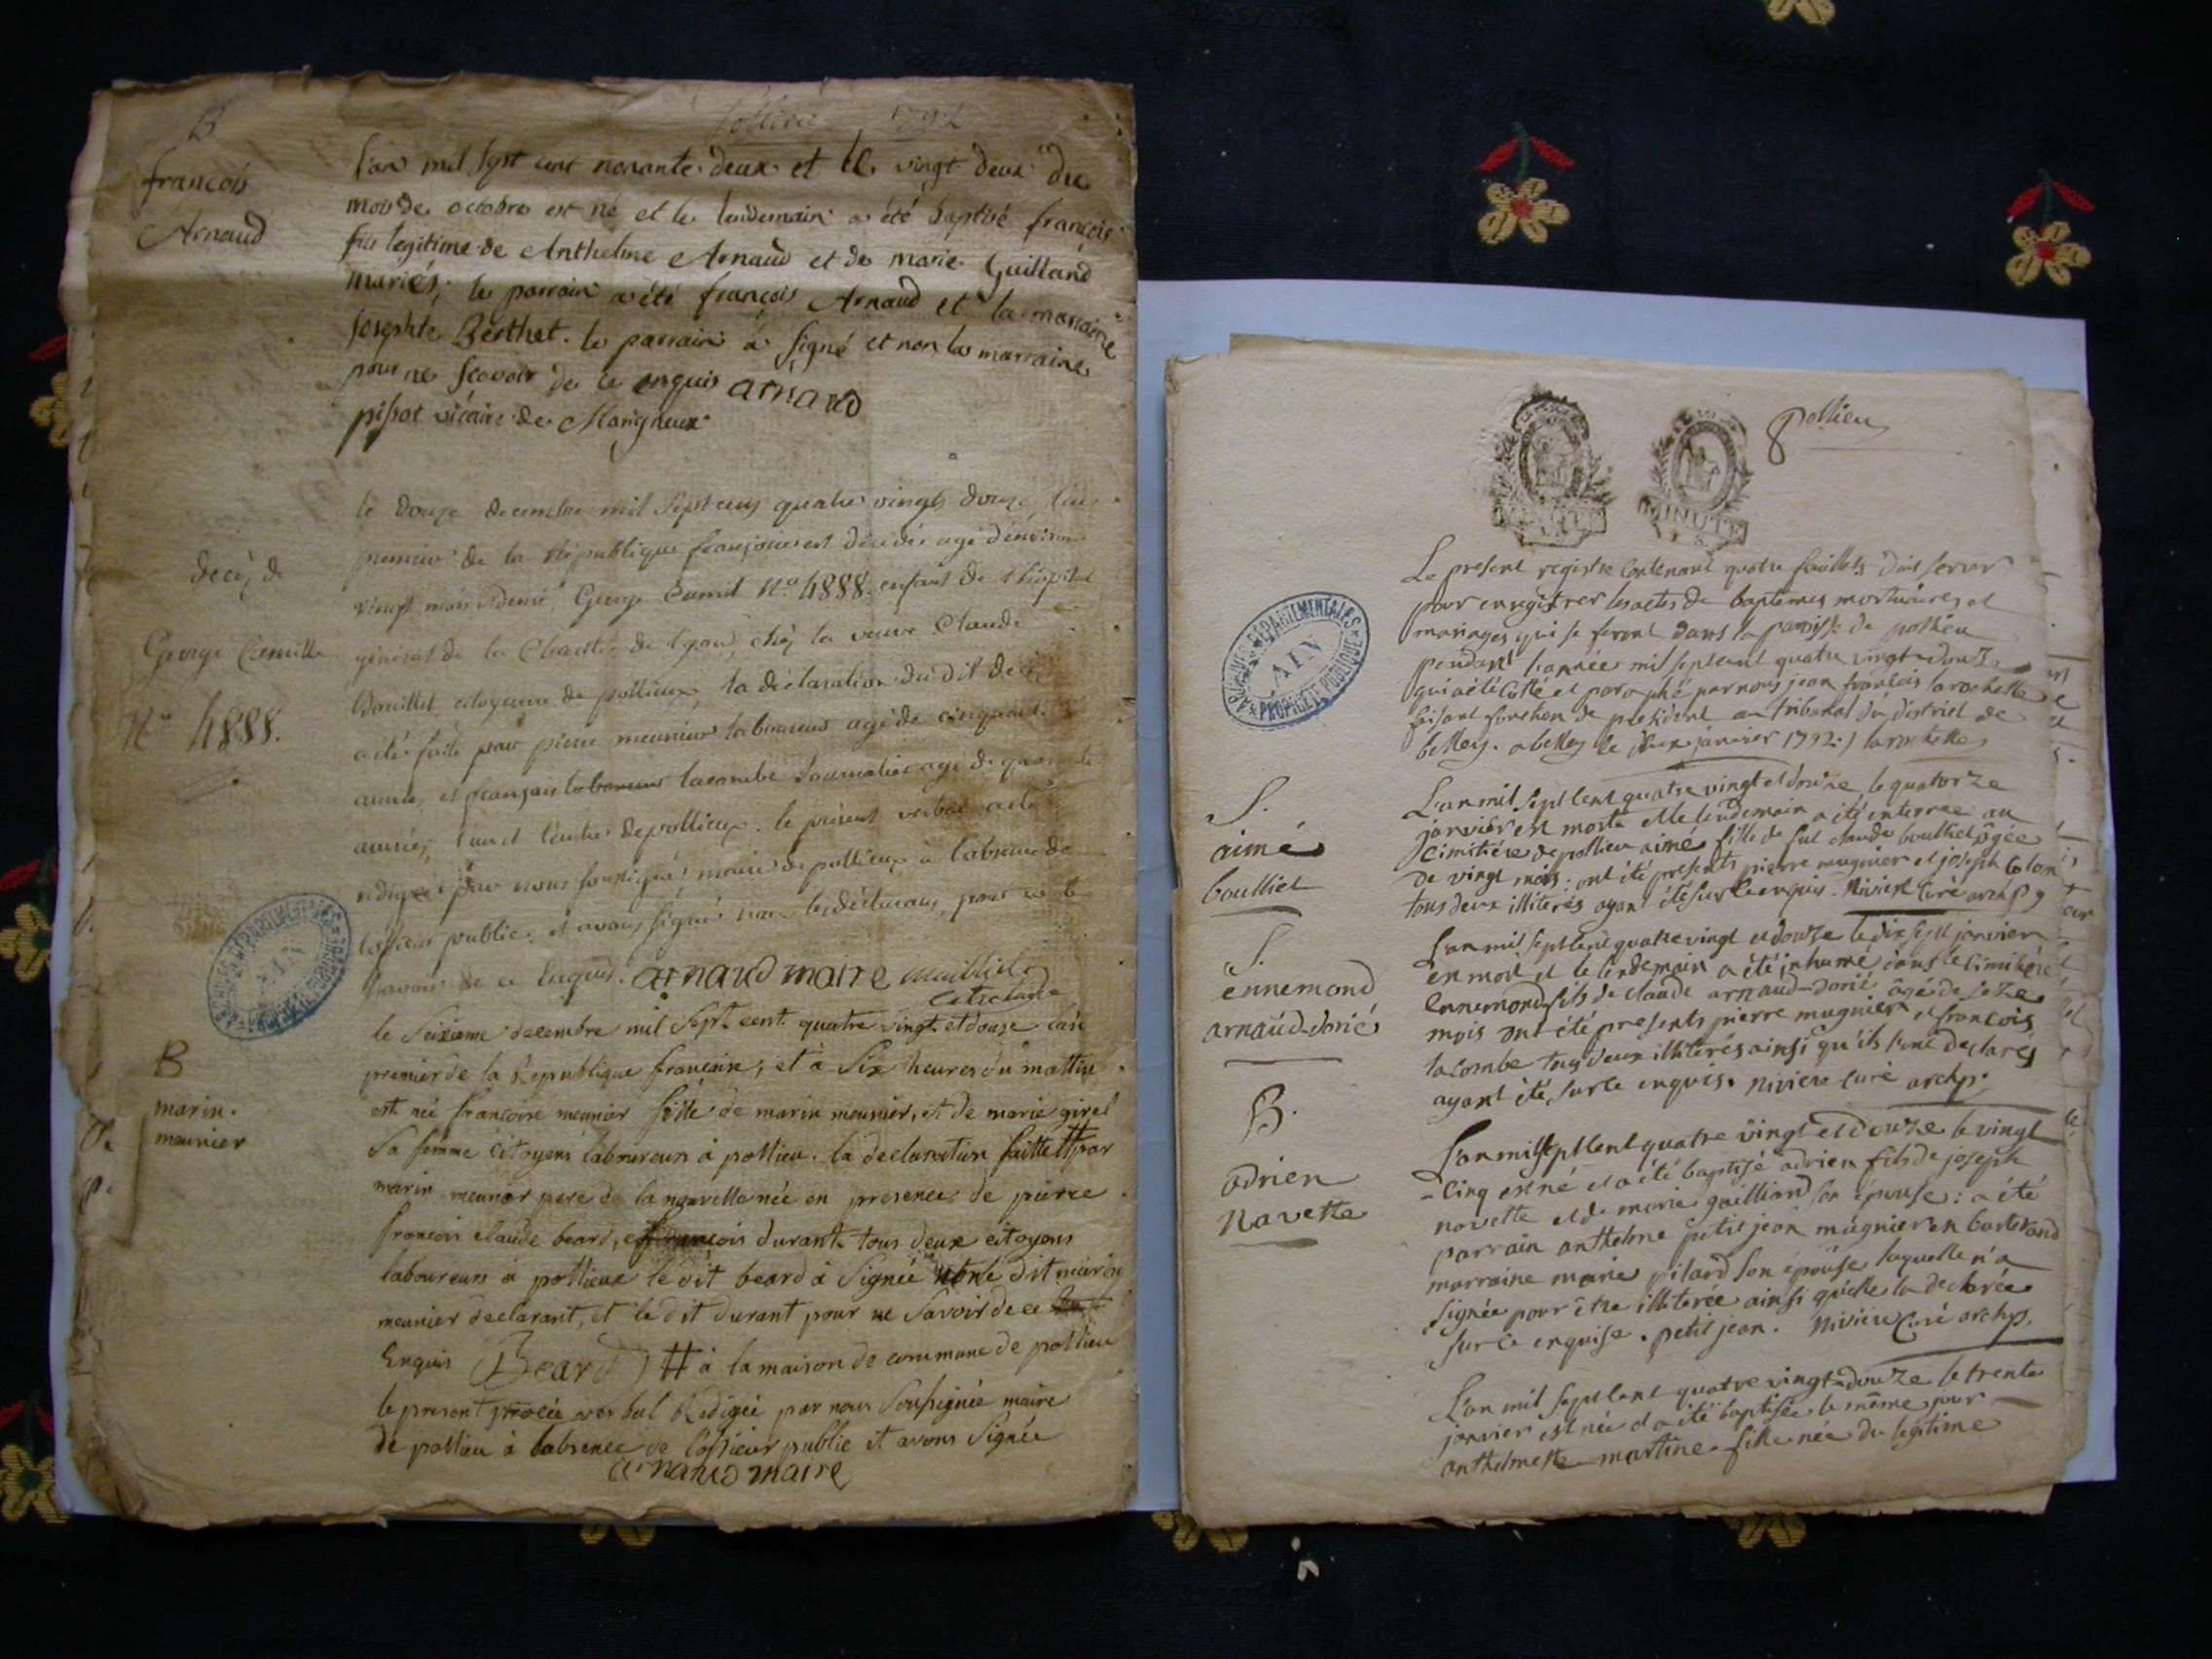 pollieu 1792
B
françois
Arnaud
L'an mil sept cent nonante deux et le vingt deux du
mois de octobre est né et le lendemain a été baptisé françois
fils legitime de Anthelme Arnaud et de marie Guilland
mariés; le parrain a été françois Arnaud et la marraine
josephte Berthet. le parrain a signé et non la marraine
pour ne scavoir de ce enquis arnaud
pissot vicaire de Marignieux
decès de
George Camille
N.º 4888.
le douze decembre mil sept cens quatre vingts douze, l'an
premier de la République françoise est décédé agé d'environ
vingt mois et demi, George Camil N.º 4888. enfant de l'hopital
général de la Charité de Lyon, chez la veuve Claude
Bouillet, citoyenne de pollieux, la déclaration du dit decès
a été faite par pierre meunier laboureur agé de cinquante
années, et françois laboureur lacombe Journalier agé de quarante
années, l'un et l'autre de pollieux. le présent verbal acte
redigée par nous soussigné maire de pollieux à l'absence de
l'officier public, et avons signé non les déclarans, pour ne le
savoir de ce Enquis. arnaud maire
B
marin
meunier
le Seizieme decembre mil Sept. cent. quatre vingt. et douze l'an
premier de la Republique francaise, et à Six heures du mattin
est née francoise meunier fille de marin meunier, et de marie girel
Sa femme Citoyens laboureurs à pollieu. la declaration faitte # par
marin meunier pere de la nouvelle née en presence de pierre
francois claude beard, et francois durant tous deux citoyens
laboureurs à pollieux le dit beard à Signée non le dit marin
meunier declarant, et le dit durant pour ne Savoir de ce
Enquis Beard # à la maison de commune de pollieu
le present procée verbal Redigée par nous Soussignée maire
de pollieu à labsence de lofficier public et avons Signée
arnaud maire
ARCHIVES DÉPARTEMENTALES
AIN
PROPRIÉTÉ PUBLIQUE
Pollieu
MINUTE
Le present registre Contenant quatre feuillets doit servir
pour enregistrer les actes de baptêmes mortuaires et
mariages qui se feront dans la paroisse de pollieu
pendant l'année mil sept cent quatre vingt-douze
qui a été Cotté et paraphé par nous jean francois larochette
faisant function de president au tribunal du district de
belley. a belley le deux janvier 1792. larochette
S.
aimé
boulliet
L'an mil sept cent quatre vingt et douze le quatorze
janvier est morte et le lendemain a été enterree au
cimitière de pollieu aimé fille de feu claude boulliet âgée
de vingt mois: ont été presents pierre mugnier et joseph Colon
tous deux illiterés ayant été sur ce enquis. Niviere Curé archp
S.
ennemond
arnaud-dorié
L'an mil sept cent quatre vingt et douze le dix sept janvier
en mort et le lendemain a été inhumé dans le cimitière
Ennemond fils de claude arnaud-dorié âgé de seze
mois ont été presents pierre mugnier et francois
lacombe tous deux illiterés ainsi qu'ils l'ont declarés
ayant été sur ce enquis. Niviere curé archp.
B.
adrien
Navette
L'an mil sept cent quatre vingt et douze le vingt
-Cinq est né et a été baptisé adrien fils de joseph
navette et de marie guilliand son épouse: a été
parrain anthelme petit jean mugnier en
marraine marie pilard son épouse laquelle n'a
signée pour être illiterée ainsi qu'elle l'a declarée
sur ce enquise. petit jean. Niviere Curé archp.
L'an mil sept cent quatre vingt-douze le trente
janvier est née et a été baptisée le même jour
anthelmette martine fille née du légitime